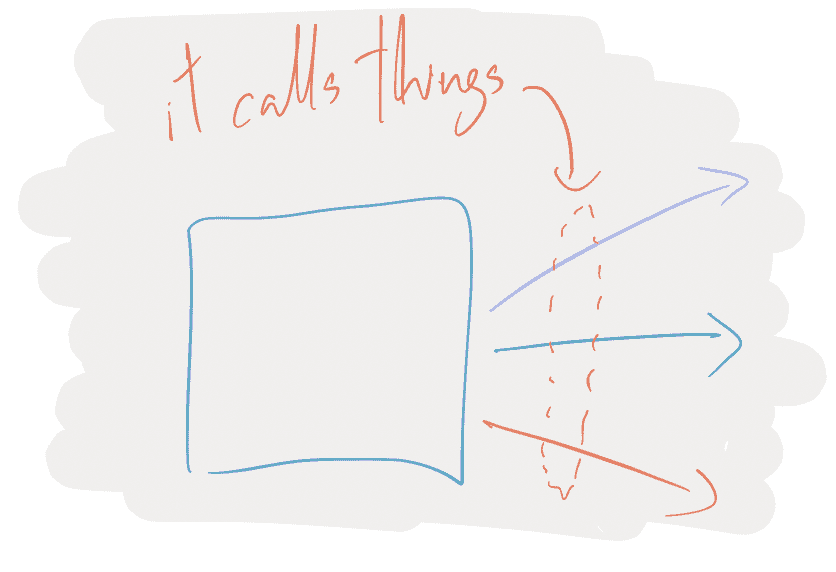 it calls things